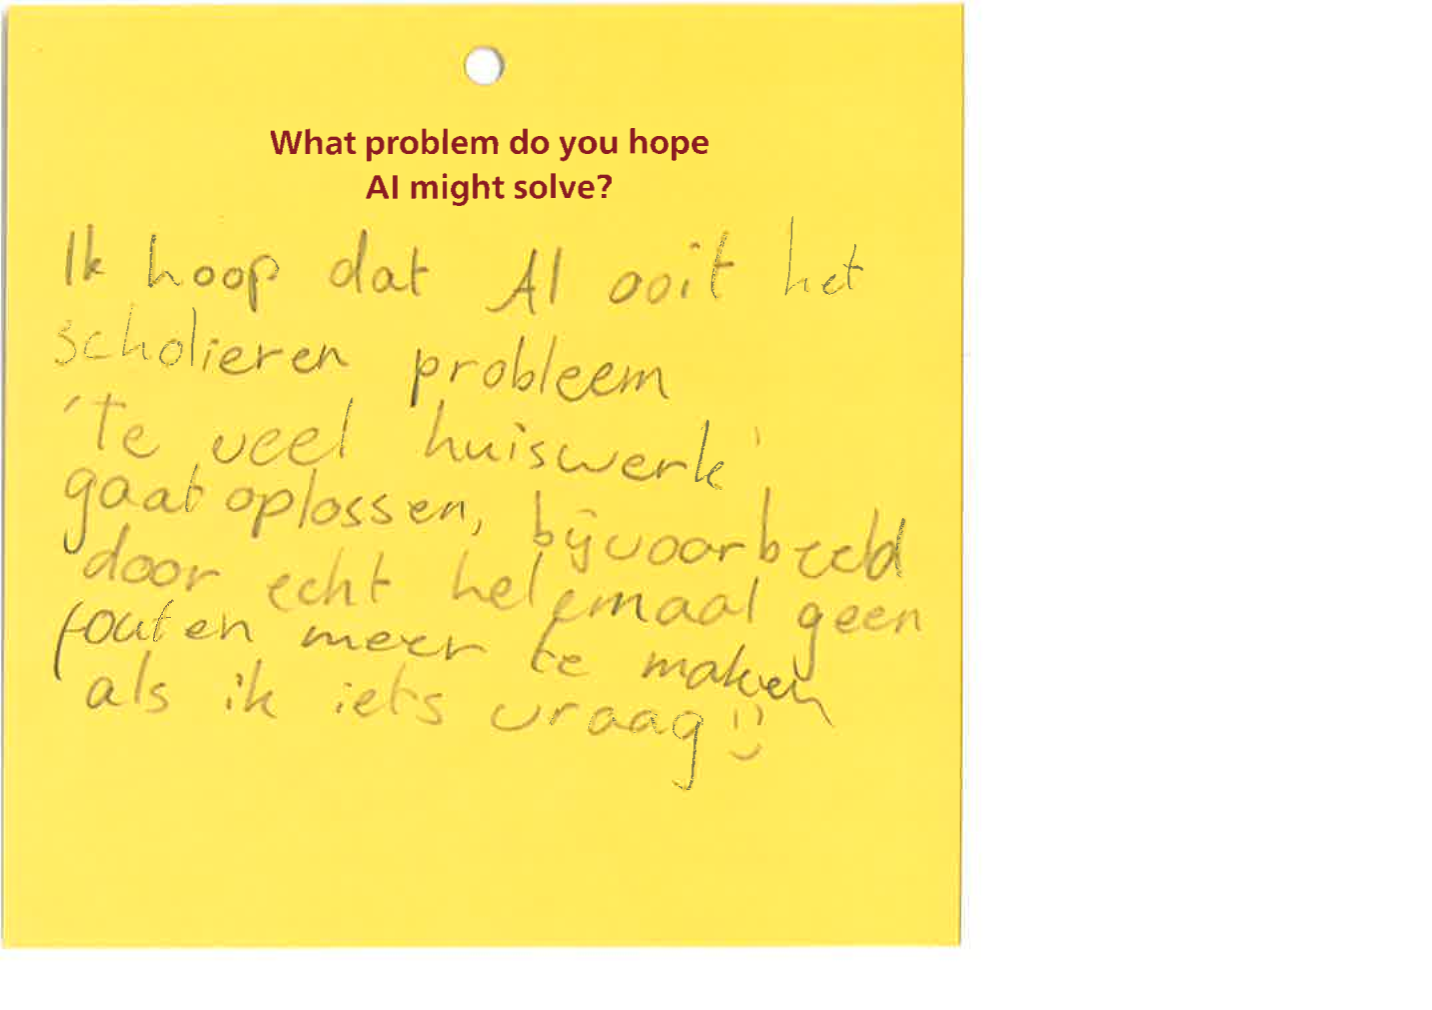 What problem do you hope
AI might solve?
Ik hoop dat AI ooit het
scholieren probleem
'te veel huiswerk'
gaat oplossen, bijvoorbeeld
door echt helemaal geen
fouten meer te maken
als ik iets vraag :)